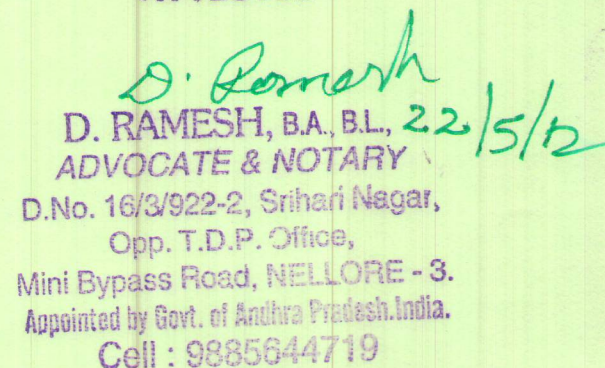 D. Ramesh
D. RAMESH, B.A., B.L., 22/5/12
ADVOCATE & NOTARY
D.No. 16/3/922-2, Srihari Nagar,
Opp. T.D.P. Office,
Mini Bypass Road, NELLORE - 3.
Appointed by Govt. of Andhra Pradesh.India.
Cell : 9885644719